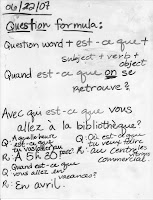 06/22/07
Question formula:
Question word + est-ce que +
subject + verb +
object
Quand est-ce que on se
retrouve?
Avec qui est-ce que vous
allez à la bibliothèque?
Q: A quelle heure
est-ce que
tu vas
R: A 5h30
Q: Quand est-ce que
vous allez en
vacances?
R: En avril.
Q: Où est-ce que
tu veux faire
R: au centre
commercial